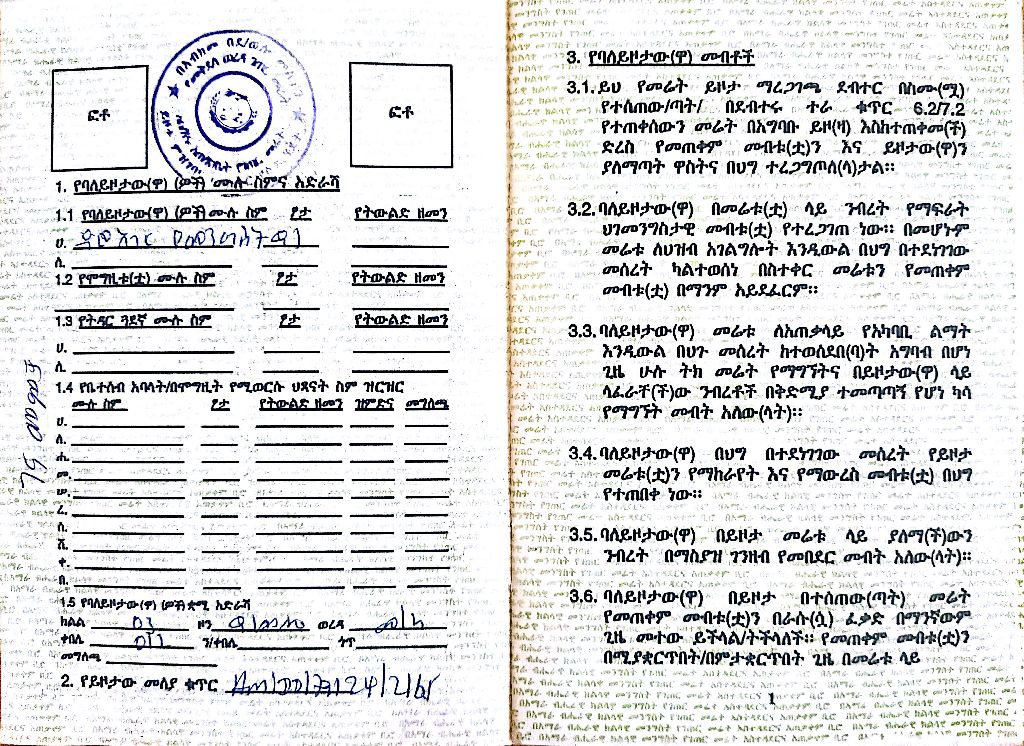 ፎቶ
ፎቶ
1. የባለይዞታው(ዋ) (ዎች) ሙሉ ስምና አድራሻ
1.1 የባለይዞታው(ዋ) (ዎች) ሙሉ ስም ፆታ የትውልድ ዘመን
ሀ.
ለ.
1.2 የሞግዚቱ(ቷ) ሙሉ ስም ፆታ የትውልድ ዘመን
1.3 የትዳር ጓደኛ ሙሉ ስም ፆታ የትውልድ ዘመን
ሀ.
ለ.
1.4 የቤተሰብ አባላት/በሞግዚት የሚወርሱ ህጻናት ስም ዝርዝር
ሙሉ ስም ፆታ የትውልድ ዘመን ዝምድና መግለጫ
ሀ.
ለ.
ሐ.
መ.
ሠ.
ረ.
ሰ.
ሸ.
ቀ.
በ.
1.5 የባለይዞታው(ዋ) (ዎች) ቋሚ አድራሻ
ክልል 03 ዞን ወረዳ
ቀበሌ 011 ን/ቀበሌ ጎጥ
መግለጫ
2. የይዞታው መለያ ቁጥር
3. የባለይዞታው(ዋ) መብቶች
3.1. ይህ የመሬት ይዞታ ማረጋገጫ ደብተር በስሙ(ሟ)
የተሰጠው/ጣት/ በደብተሩ ተራ ቁጥር 6.2/7.2
የተጠቀሰውን መሬት በአግባቡ ይዞ(ዛ) እስከተጠቀመ(ች)
ድረስ የመጠቀም መብቱ(ቷ)ን እና ይዞታው(ዋ)ን
ያለማጣት ዋስትና በህግ ተረጋግጦለ(ላ)ታል።
3.2. ባለይዞታው(ዋ) በመሬቱ(ቷ) ላይ ንብረት የማፍራት
ህገመንግስታዊ መብቱ(ቷ) የተረጋገጠ ነው። በመሆኑም
መሬቱ ለህዝብ አገልግሎት እንዲውል በህግ በተደነገገው
መሰረት ካልተወሰነ በስተቀር መሬቱን የመጠቀም
መብቱ(ቷ) በማንም አይደፈርም።
3.3. ባለይዞታው(ዋ) መሬቱ ለአጠቃላይ የአካባቢ ልማት
እንዲውል በህጉ መሰረት ከተወሰደበ(ባ)ት አግባብ በሆነ
ጊዜ ሁሉ ትክ መሬት የማግኘትና በይዞታው(ዋ) ላይ
ላፈራቸ(ች)ው ንብረቶች በቅድሚያ ተመጣጣኝ የሆነ ካሳ
የማግኘት መብት አለው(ላት)።
3.4. ባለይዞታው(ዋ) በህግ በተደነገገው መሰረት የይዞታ
መሬቱ(ቷ)ን የማከራየት እና የማውረስ መብቱ(ቷ) በህግ
የተጠበቀ ነው።
3.5. ባለይዞታው(ዋ) በይዞታ መሬቱ ላይ ያለማ(ች)ውን
ንብረት በማስያዝ ገንዘብ የመበደር መብት አለው(ላት)።
3.6. ባለይዞታው(ዋ) በይዞታ በተሰጠው(ጣት) መሬት
የመጠቀም መብቱ(ቷ)ን በራሱ(ሷ) ፈቃድ በማንኛውም
ጊዜ መተው ይችላል/ትችላለች። የመጠቀም መብቱ(ቷ)ን
በሚያቋርጥበት/በምታቋርጥበት ጊዜ በመሬቱ ላይ
1